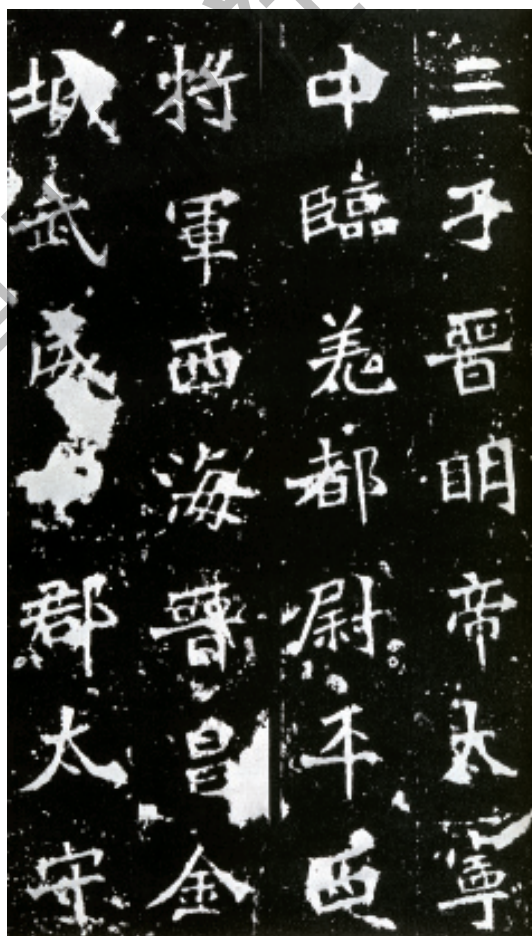 三子晉明帝太寧
中臨羌都尉平西
將軍西海晉昌金
城武威郡太守